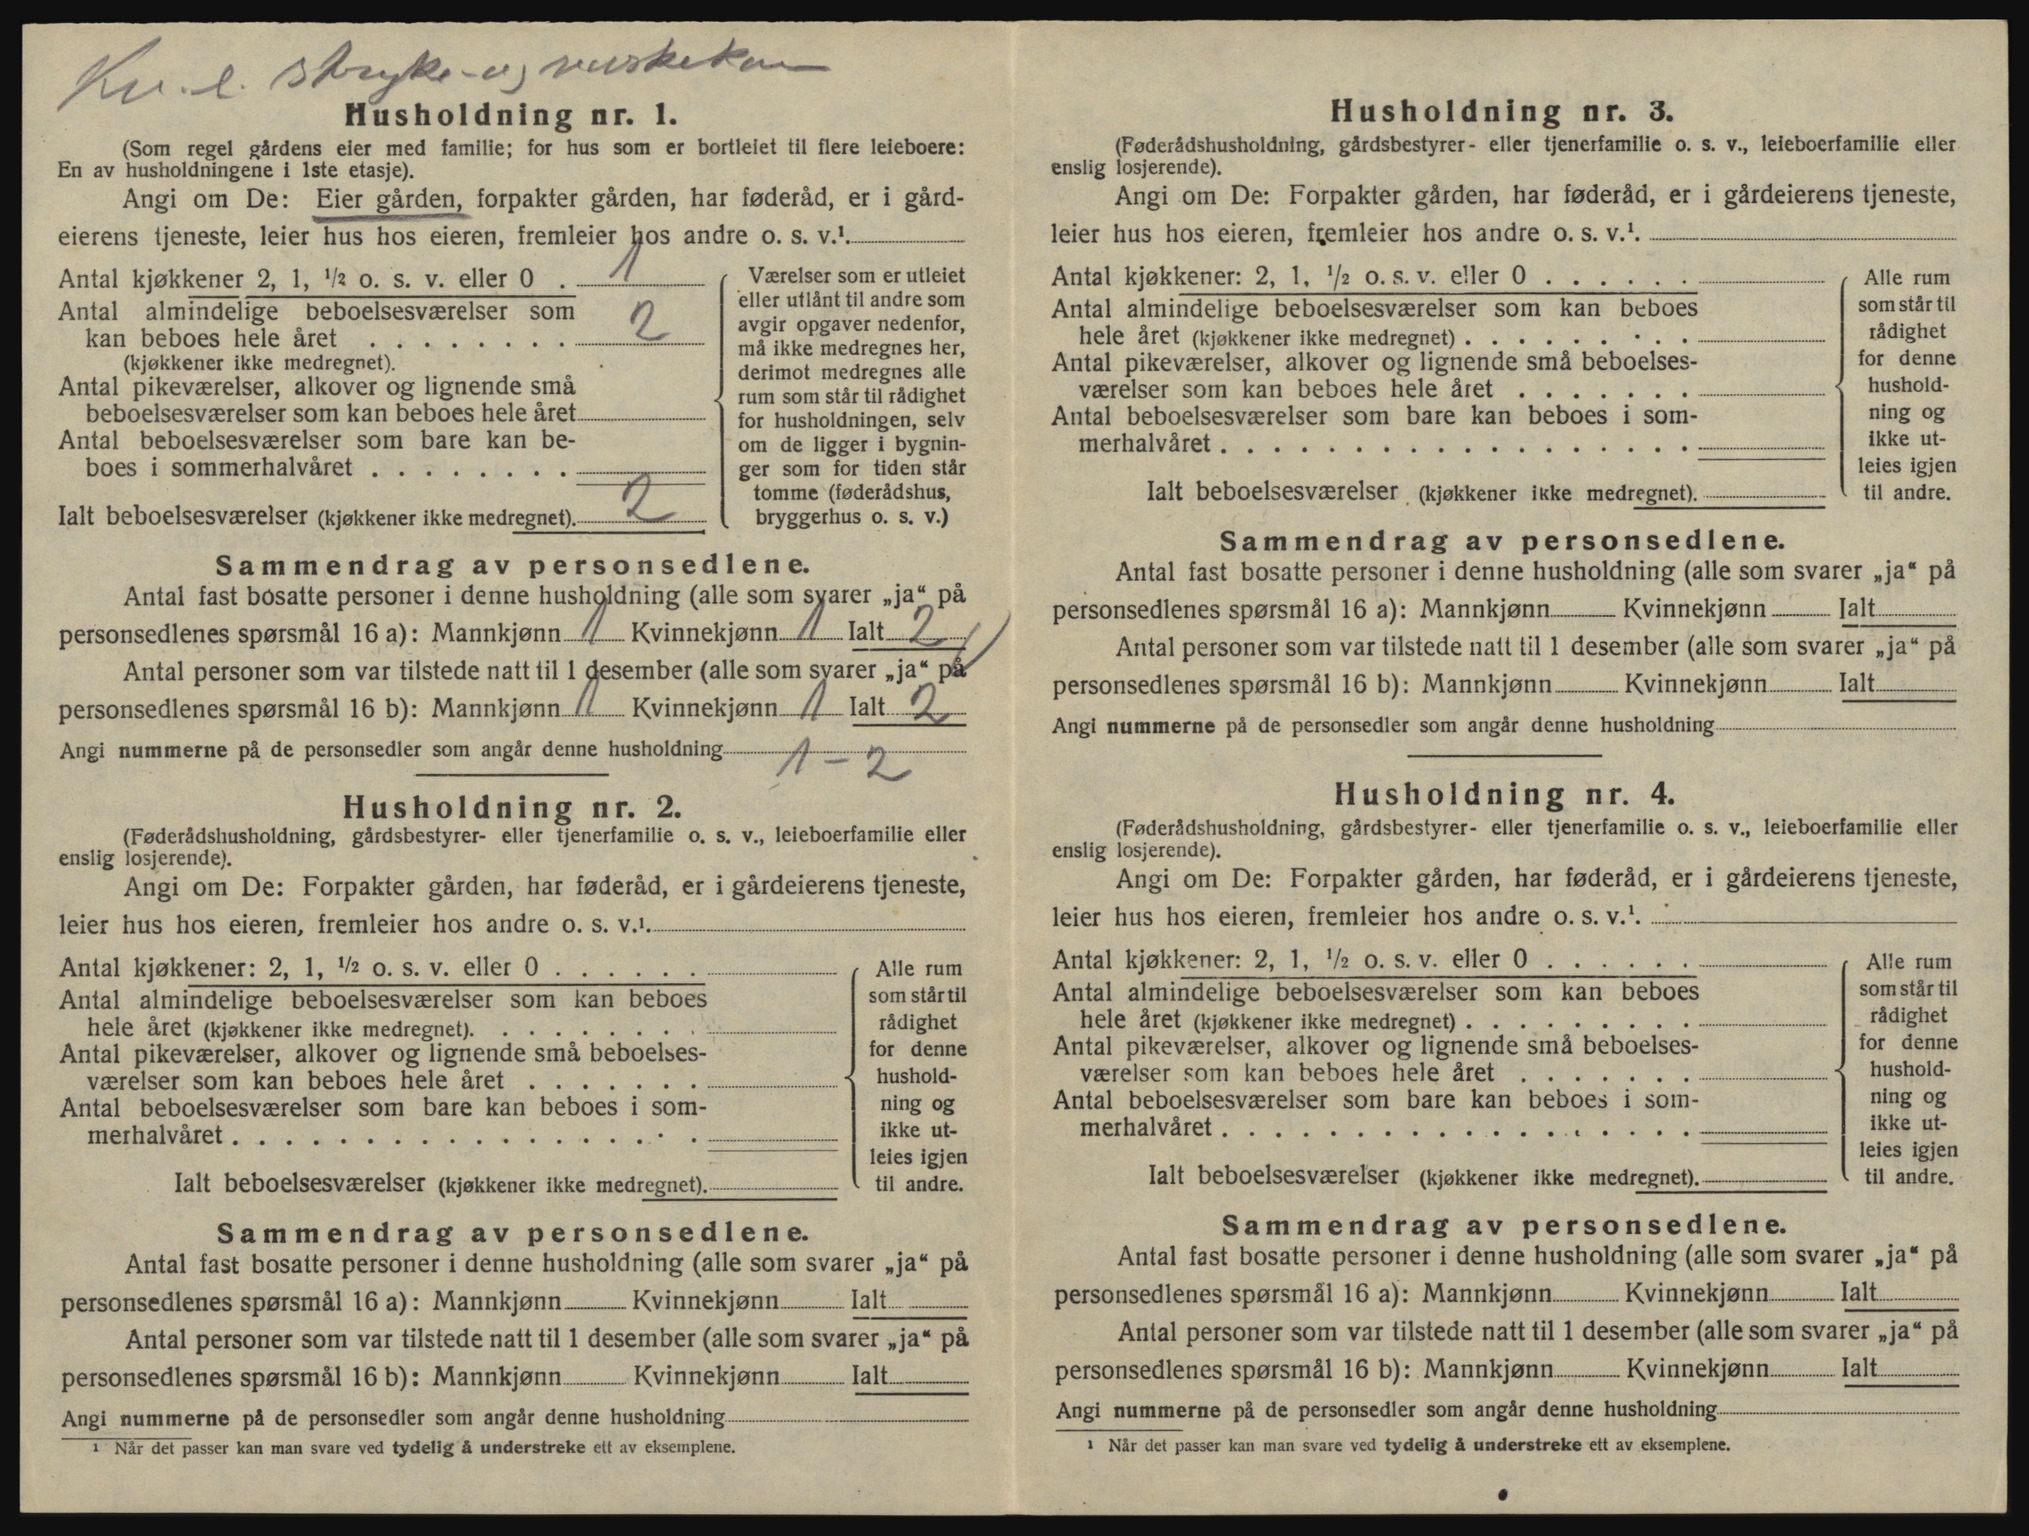 Kv. l. stryke- og
Husholdning nr. 1.
(Som regel gårdens eier med familie; for hus som er bortleiet til flere leieboere:
En av husholdningene i 1ste etasje).
Angi om De: Eier gården, forpakter gården, har føderåd, er i gård-
eierens tjeneste, leier hus hos eieren, fremleier hos andre o. s. v.¹.
Antal kjøkkener 2, 1, ½ o. s. v. eller 0 . 1
Antal almindelige beboelsesværelser som
kan beboes hele året . . . . . . . . 2
(kjøkkener ikke medregnet).
Antal pikeværelser, alkover og lignende små
beboelsesværelser som kan beboes hele året
Antal beboelsesværelser som bare kan be-
boes i sommerhalvåret . . . . . . . .
Ialt beboelsesværelser (kjøkkener ikke medregnet). 2
Værelser som er utleiet
eller utlånt til andre som
avgir opgaver nedenfor,
må ikke medregnes her,
derimot medregnes alle
rum som står til rådighet
for husholdningen, selv
om de ligger i bygnin-
ger som for tiden står
tomme (føderådshus,
bryggerhus o. s. v.)
Sammendrag av personsedlene.
Antal fast bosatte personer i denne husholdning (alle som svarer „ja“ på
personsedlenes spørsmål 16 a): Mannkjønn 1 Kvinnekjønn 1 Ialt 2
Antal personer som var tilstede natt til 1 desember (alle som svarer „ja“ på
personsedlenes spørsmål 16 b): Mannkjønn 1 Kvinnekjønn 1 Ialt 2
Angi nummerne på de personsedler som angår denne husholdning 1 - 2
Husholdning nr. 2.
(Føderådshusholdning, gårdsbestyrer- eller tjenerfamilie o. s. v., leieboerfamilie eller
enslig losjerende).
Angi om De: Forpakter gården, har føderåd, er i gårdeierens tjeneste,
leier hus hos eieren, fremleier hos andre o. s. v.¹.
Antal kjøkkener: 2, 1, ½ o. s. v. eller 0 . . . . . .
Antal almindelige beboelsesværelser som kan beboes
hele året (kjøkkener ikke medregnet). . . . . . . . .
Antal pikeværelser, alkover og lignende små beboelses-
værelser som kan beboes hele året . . . . . . .
Antal beboelsesværelser som bare kan beboes i som-
merhalvåret . . . . . . . . . . . . . . . . . .
Ialt beboelsesværelser (kjøkkener ikke medregnet).
Alle rum
som står til
rådighet
for denne
hushold-
ning og
ikke ut-
leies igjen
til andre.
Sammendrag av personsedlene.
Antal fast bosatte personer i denne husholdning (alle som svarer „ja“ på
personsedlenes spørsmål 16 a): Mannkjønn Kvinnekjønn Ialt
Antal personer som var tilstede natt til 1 desember (alle som svarer „ja“ på
personsedlenes spørsmål 16 b): Mannkjønn Kvinnekjønn Ialt
Angi nummerne på de personsedler som angår denne husholdning
¹ Når det passer kan man svare ved tydelig å understreke ett av eksemplene.
Husholdning nr. 3.
(Føderådshusholdning, gårdsbestyrer- eller tjenerfamilie o. s. v., leieboerfamilie eller
enslig losjerende).
Angi om De: Forpakter gården, har føderåd, er i gårdeierens tjeneste,
leier hus hos eieren, fremleier hos andre o. s. v.¹.
Antal kjøkkener: 2, 1, ½ o. s. v. eller 0 . . . . . .
Antal almindelige beboelsesværelser som kan beboes
hele året (kjøkkener ikke medregnet) . . . . . . . . .
Antal pikeværelser, alkover og lignende små beboelses-
værelser som kan beboes hele året . . . . . . .
Antal beboelsesværelser som bare kan beboes i som-
merhalvåret . . . . . . . . . . . . . . . . . .
Ialt beboelsesværelser (kjøkkener ikke medregnet).
Alle rum
som står til
rådighet
for denne
hushold-
ning og
ikke ut-
leies igjen
til andre.
Sammendrag av personsedlene.
Antal fast bosatte personer i denne husholdning (alle som svarer „ja“ på
personsedlenes spørsmål 16 a): Mannkjønn Kvinnekjønn Ialt
Antal personer som var tilstede natt til 1 desember (alle som svarer „ja“ på
personsedlenes spørsmål 16 b): Mannkjønn Kvinnekjønn Ialt
Angi nummerne på de personsedler som angår denne husholdning
Husholdning nr. 4.
(Føderådshusholdning, gårdsbestyrer- eller tjenerfamilie o. s. v., leieboerfamilie eller
enslig losjerende).
Angi om De: Forpakter gården, har føderåd, er i gårdeierens tjeneste,
leier hus hos eieren, fremleier hos andre o. s. v.¹.
Antal kjøkkener: 2, 1, ½ o. s. v. eller 0 . . . . . .
Antal almindelige beboelsesværelser som kan beboes
hele året (kjøkkener ikke medregnet) . . . . . . . . .
Antal pikeværelser, alkover og lignende små beboelses-
værelser som kan beboes hele året . . . . . . .
Antal beboelsesværelser som bare kan beboes i som-
merhalvåret . . . . . . . . . . . . . . . . . .
Ialt beboelsesværelser (kjøkkener ikke medregnet).
Alle rum
som står til
rådighet
for denne
hushold-
ning og
ikke ut-
leies igjen
til andre.
Sammendrag av personsedlene.
Antal fast bosatte personer i denne husholdning (alle som svarer „ja“ på
personsedlenes spørsmål 16 a): Mannkjønn Kvinnekjønn Ialt
Antal personer som var tilstede natt til 1 desember (alle som svarer „ja“ på
personsedlenes spørsmål 16 b): Mannkjønn Kvinnekjønn Ialt
Angi nummerne på de personsedler som angår denne husholdning
¹ Når det passer kan man svare ved tydelig å understreke ett av eksemplene.